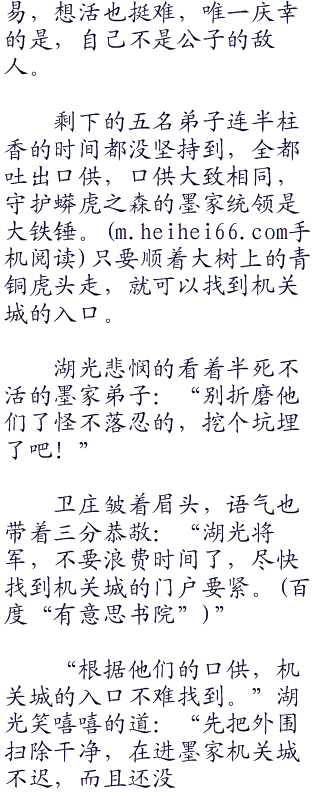 易，想活也挺难，唯一庆幸
的是，自己不是公子的敌
人。
剩下的五名弟子连半柱
香的时间都没坚持到，全都
吐出口供，口供大致相同，
守护蟒虎之森的墨家统领是
大铁锤。(m.heihei66.com手
机阅读)只要顺着大树上的青
铜虎头走，就可以找到机关
城的入口。
湖光悲悯的看着半死不
活的墨家弟子：“别折磨他
们了怪不落忍的，挖个坑埋
了吧！”
卫庄皱着眉头，语气也
带着三分恭敬：“湖光将
军，不要浪费时间了，尽快
找到机关城的门户要紧。(百
度“有意思书院”)”
“根据他们的口供，机
关城的入口不难找到。”湖
光笑嘻嘻的道：“先把外围
扫除干净，在进墨家机关城
不迟，而且还没